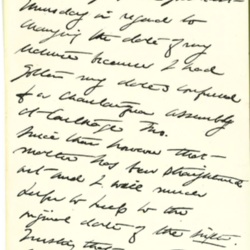 Thursday in regard to
changing the date of my
lecture because I had
gotten my dates confused
for a chautauqua assembly
at Carthage Mo.
Since then however that
matter has been straightened
out and I will much
prefer to keep to the
original date of the